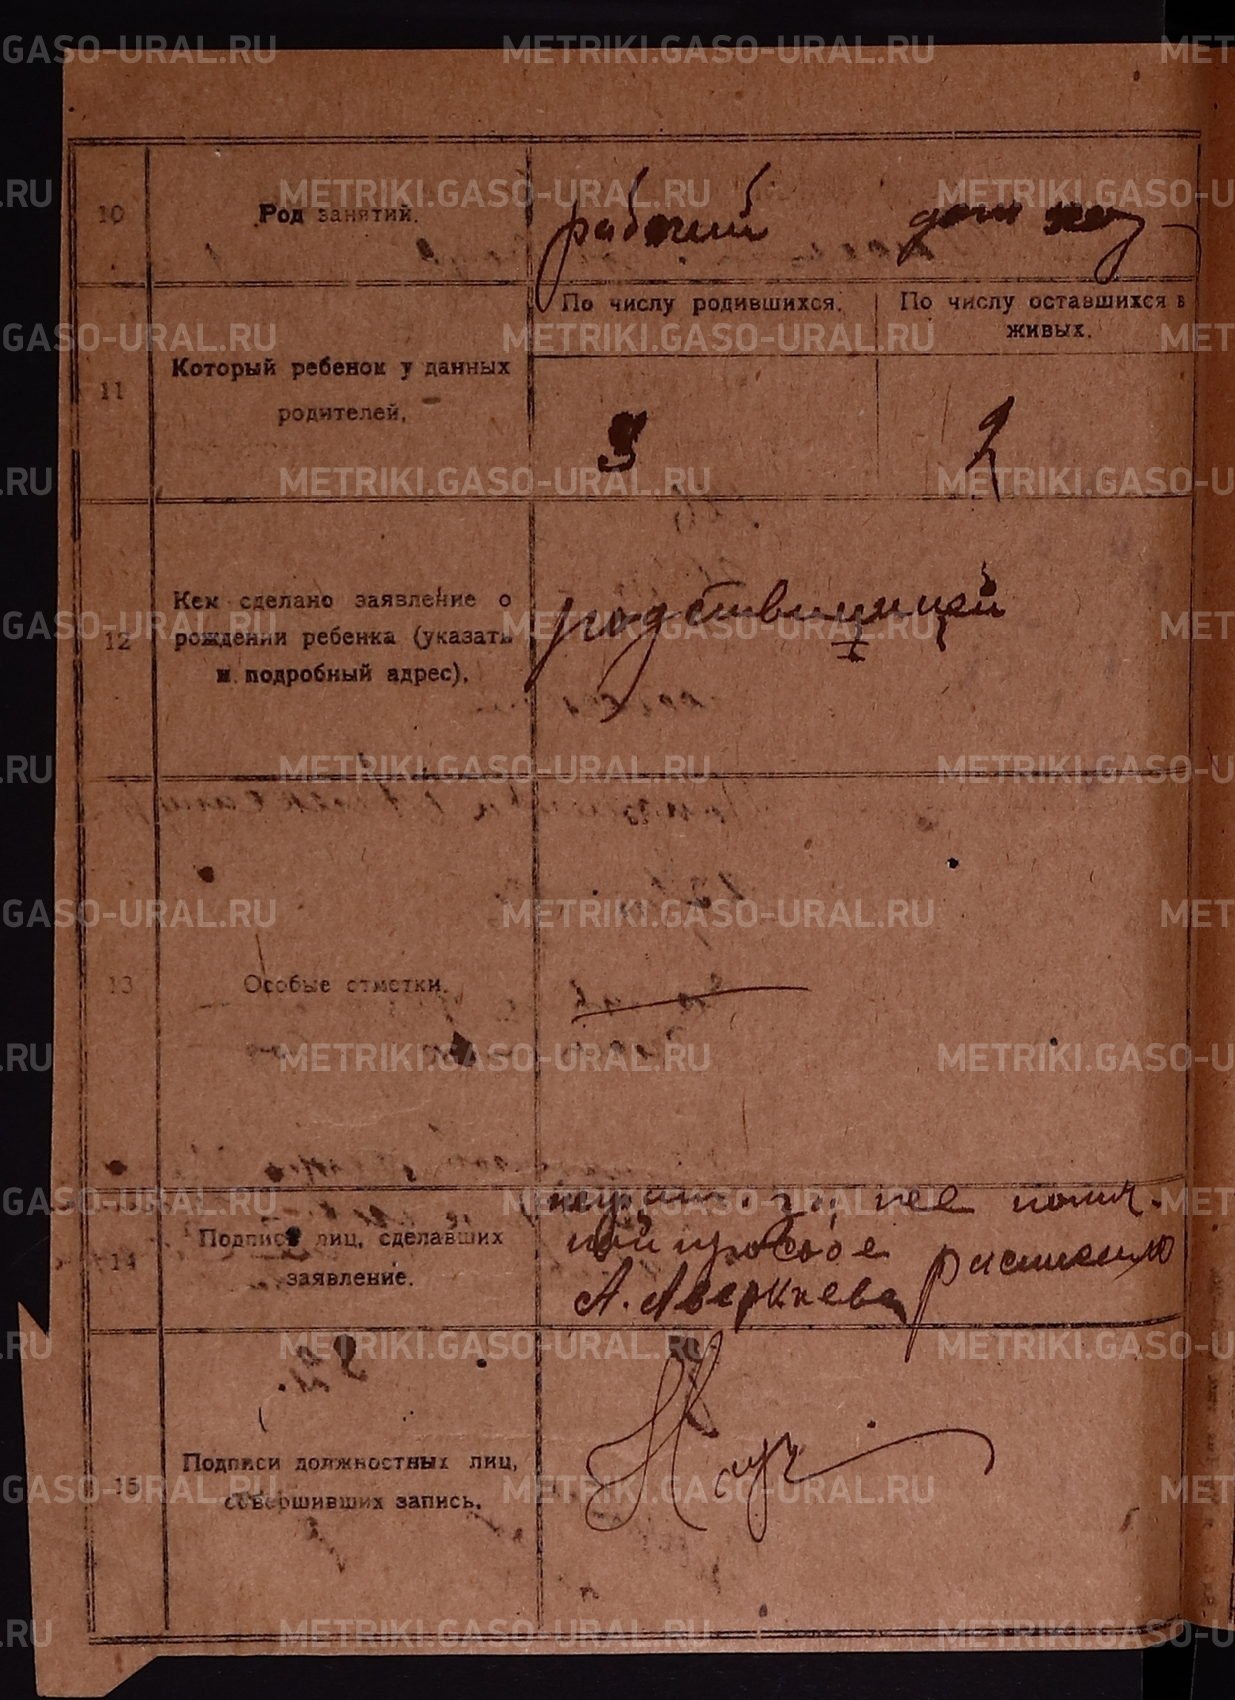 METRIKI.GASO-URAL.RU
10 Род занятий. рабочий дом хоз
11 Который ребенок у данных родителей.
По числу родившихся. По числу оставшихся в живых.
2
12 Кем сделано заявление о
рождении ребенка (указать
и подробный адрес).
родственницей
13 Особые отметки.
14 Подписи лиц, сделавших
заявление.
за нее по
просьбе
А. Аверкиева
15 Подписи должностных лиц,
совершивших запись.